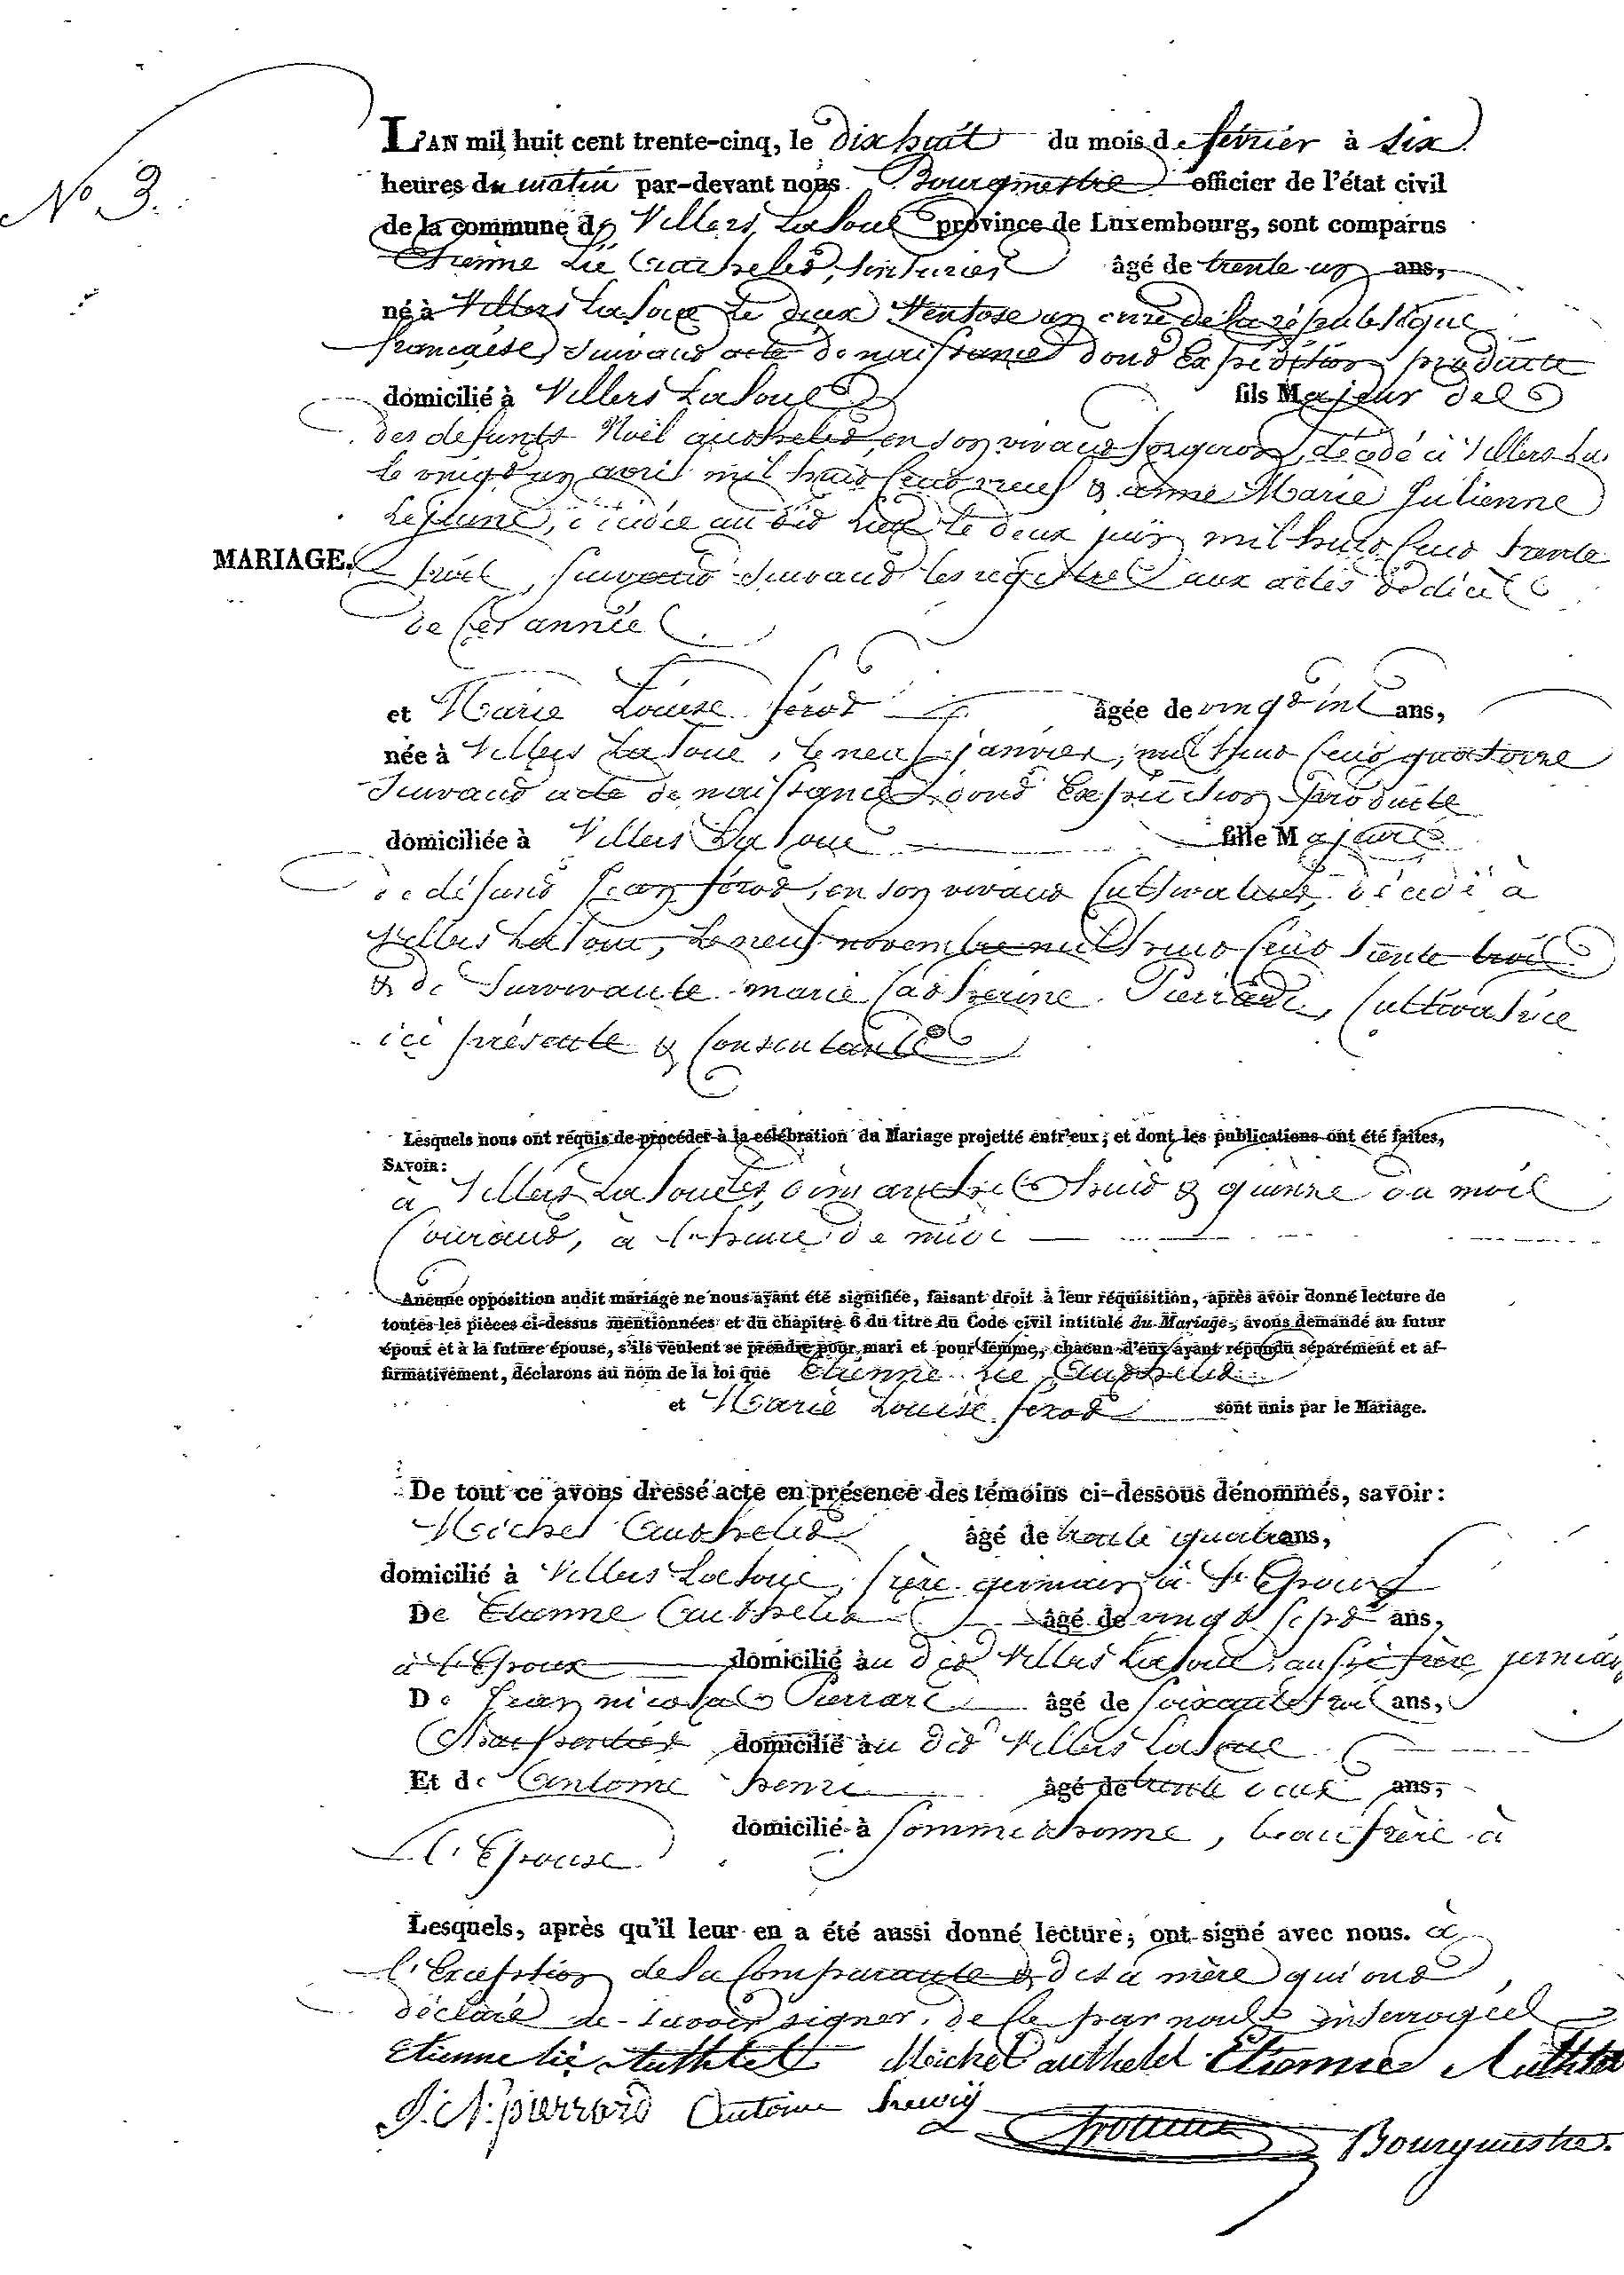 N° 3.
L'AN mil huit cent trente-cinq, le dix huit du mois de février à six
heures du matin par-devant nous Bourgmestre officier de l'état civil
de la commune de Villers La Loue province de Luxembourg, sont comparus
Etienne Lié âgé de trente un ans,
né à Villers La Loue le deux Ventose an onze de la république
française, suivant acte de naissance dont Expédition produite
domicilié à Villers La Loue fils Majeur de
des defunts Noël en son vivant forgeron, décédé à Villers La
le vingt un avril mil huit Cent neuf & anne Marie Julienne
Lejeune, décédée au dit lieu le deux juin mil huit Cent trente
trois, suivant suivant les registres aux actes de décès
MARIAGE.
de Cet année
et Marie Louise férot âgée de vingt un ans,
née à Villers La Loue, le neuf janvier, mil huit Cent quatorze
Suivant acte de naissance, dont Expédition produite
domiciliée à Villers La Loue fille Majeure
de défunt Jean férot, en son vivant Cultivateur, décédé à
Villers La Loue, le neuf novembre mil huit Cent trente trois
& de Survivante marie Catherine Pierrard, Cultivatrice
ici présente & Consentante
Lesquels nous ont requis de procéder à la célébration du Mariage projetté entr'eux; et dont les publications ont été faites,
SAVOIR:
à Villers La Loue les dimanche huit & quinze du mois
Courant, à l'heure de midi
Aucune opposition audit mariage ne nous ayant été signifiée, faisant droit à leur réquisition, après avoir donné lecture de
toutes les pièces ci-dessus mentionnées et du chapitre 6 du titre du Code civil intitulé du Mariage, avons demandé au futur
époux et à la future épouse, s'ils veulent se prendre pour mari et pour femme, chacun d'eux ayant répondu séparément et af-
firmativement, déclarons au nom de la loi que Etienne Lié Authelet
et Marie Louise férot sont unis par le Mariage.
De tout ce avons dressé acte en présence des témoins ci-dessous dénommés, savoir:
Michel Authelet âgé de trente quatre ans,
domicilié à Villers La Loue, frère germain à l'Epoux
De Etienne Authelet âgé de vingt sept ans,
à l'Epoux domicilié au dit Villers La Loue, aussi frère germain
De Jean nicolas Pierrard âgé de soixante trois ans,
Charpentier domicilié au dit Villers La Loue
Et de antoine henri âgé de trente deux ans,
domicilié à Sommethonne, beau frère à
l'Epouse
Lesquels, après qu'il leur en a été aussi donné lecture, ont signé avec nous. à
l'Exception de la Comparante & de sa mère qui ont
déclaré ne savoir signer, de Ce par nous interrogées
Etienne lié Authelet Michel authelet Etienne Authelet
J. N. pierrard Antoine henry
Bourgmestre.